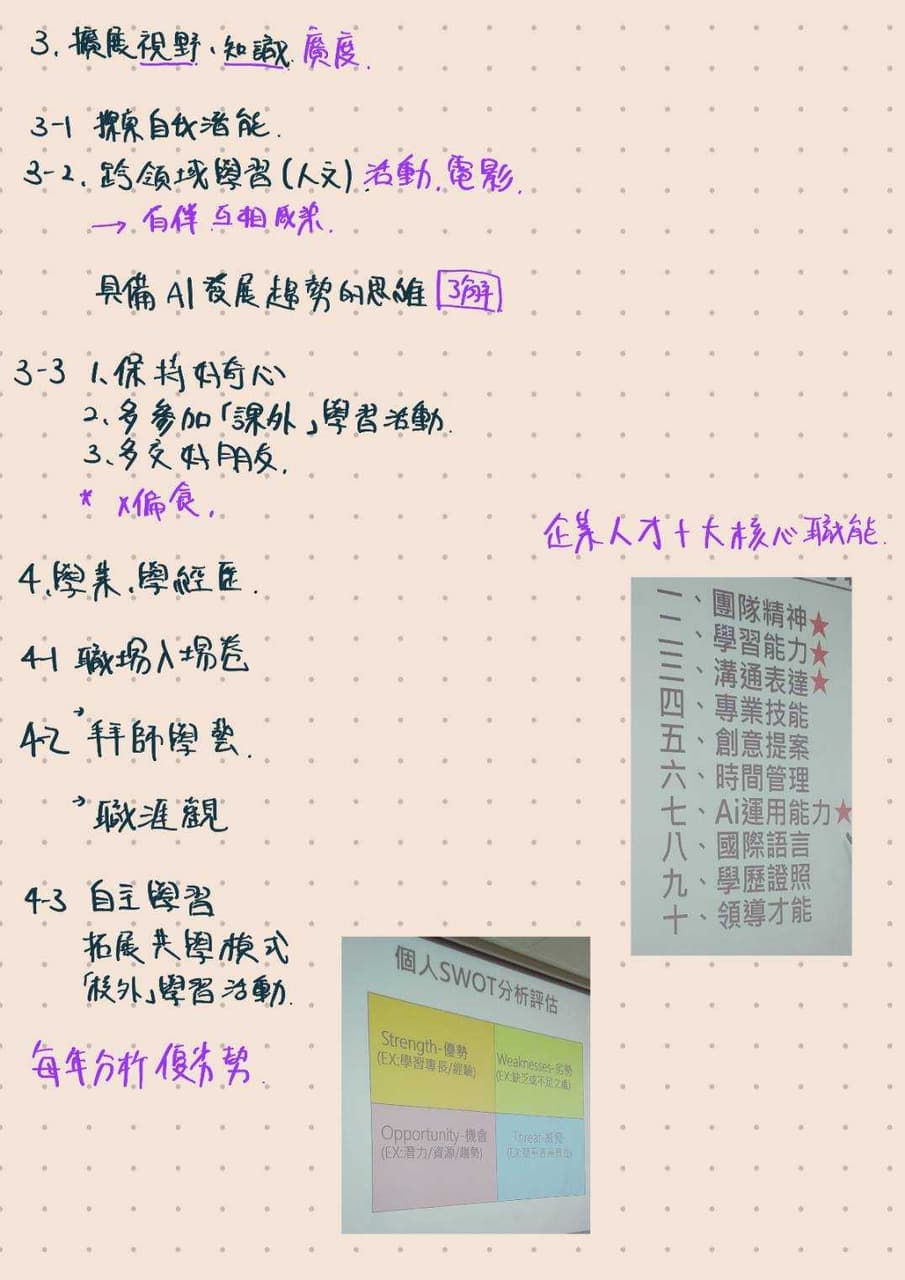 3. 擴展視野、知識 廣度.
3-1 探索自我潛能.
3-2. 跨領域學習(人文). 活動.電影.
→ 有伴互相感染.
具備AI發展趨勢的思維 了解
3-3 1、保持好奇心
2、多參加「課外」學習活動.
3、多交好朋友.
* x偏食.
企業人才十大核心職能.
4、學業、學經歷.
一、團隊精神★
二、學習能力★
三、溝通表達★
四、專業技能
五、創意提案
六、時間管理
七、Ai運用能力★
八、國際語言
九、學歷證照
十、領導才能
4-1 職場入場卷
4-2 → 拜師學藝.
→ 職涯觀
4-3 自主學習
拓展共學模式
「校外」學習活動.
每年分析優劣勢.
個人SWOT分析評估
Strength-優勢
(EX:學習專長/經驗)
Weaknesses-劣勢
(EX:缺乏或不足之處)
Opportunity-機會
(EX:潛力/資源/趨勢)
Threat-威脅